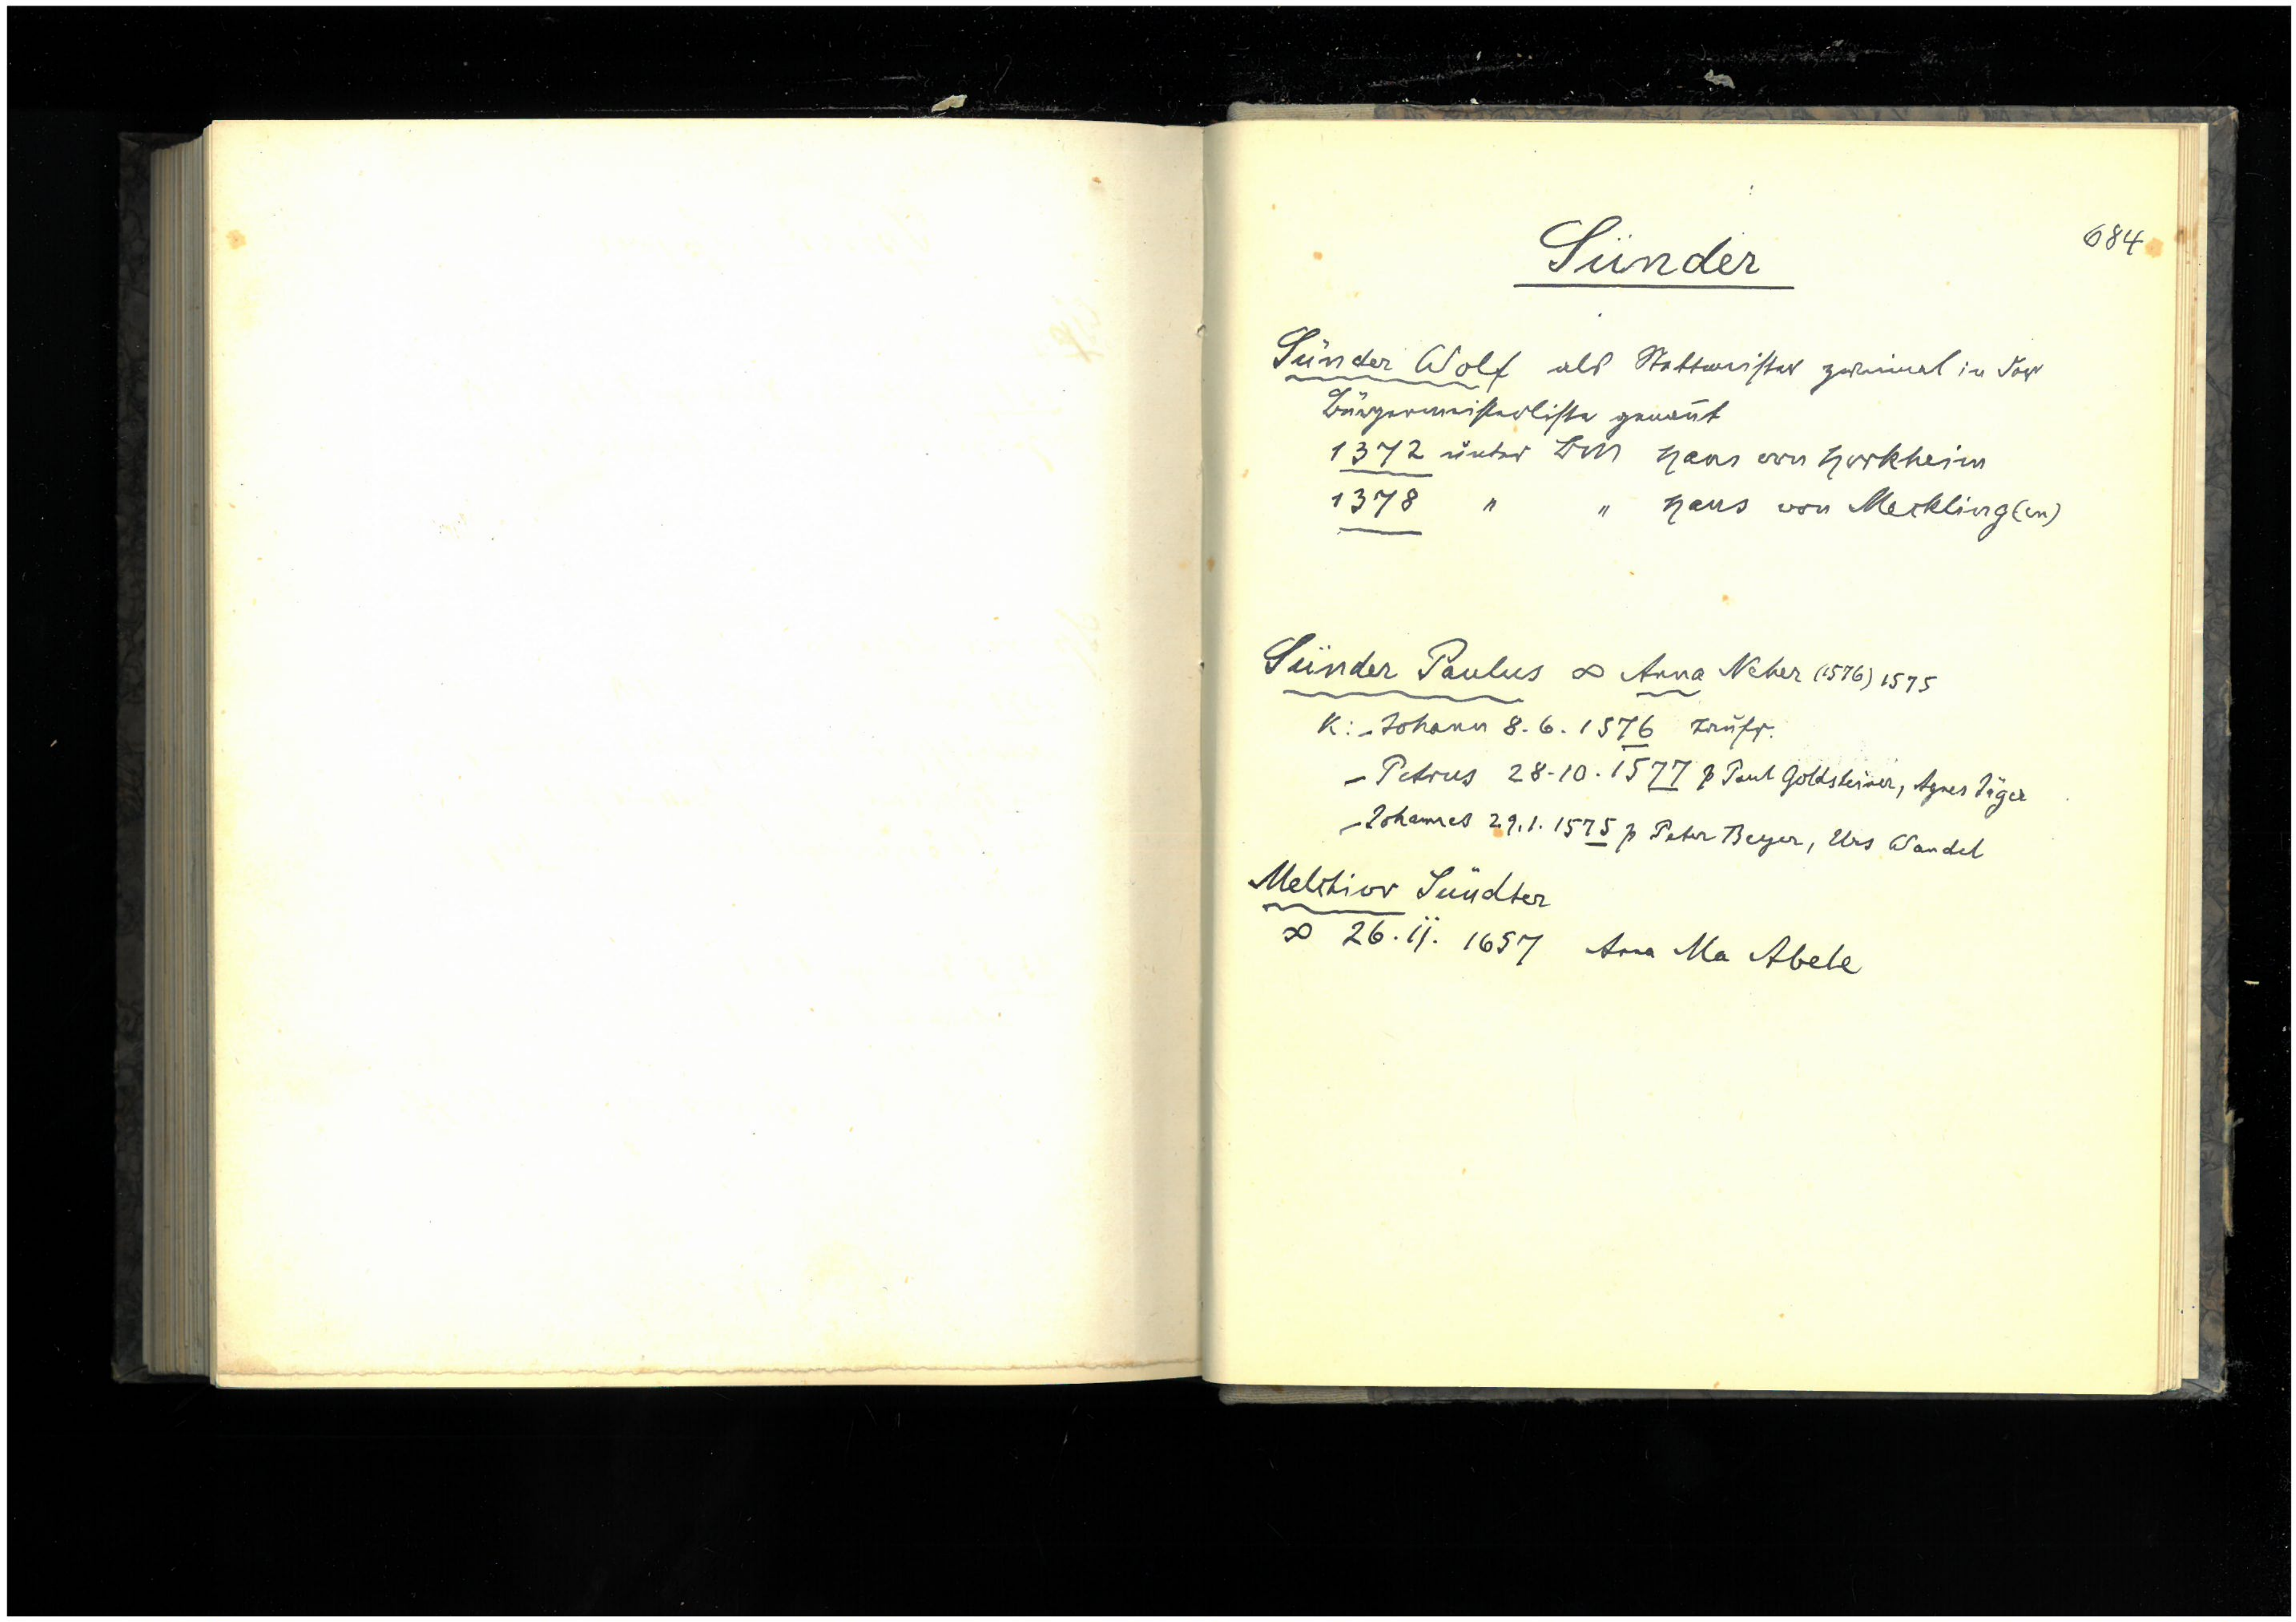 684
Sünder
Sünder Wolf als Stattmeister zweimal in der
Bürgermeisterliste genan̄t
1372 unter BM Hans von Horkheim
1378 " " Hans von Meckling(en)
Sünder Paulus ∞ Anna Neher (1576) 1575
K: - Johann 8.6.1576
- Petrus 28-10.1577 p Paul Goldsteiner, Agnes Jäger
- Johannes 29.1.1575 p Peter Beyer, Urs Wandel
Melchior Sündter
∞ 26.11.1657 Anna Ma Abele